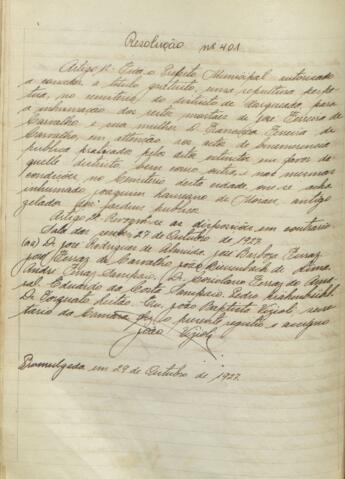 Resolução nº 401
Artigo 1º Fica o Prefeito Municipal autorizado
a conceder a titulo gratuito, uma sepultura perpe-
tua, no cemiterio do districto de Xarqueada, para
a inhumação dos restos mortaes de José Ferreira de
Carvalho e sua mulher D. Francisca Ferreira de
Carvalho, em attenção aos actos de benemerencia
publica praticado pelos ditos extinctos em favor da-
quelle districto, bem como outra, e nas mesmas
condicções, no Cemiterio desta cidade, onde se acha
inhumado Joaquim de Moraes, antigo
zelador dos jardins publicos.
Artigo 2º Revogam-se as disposições em contrario
Sala das sessões, 27 de Outubro de 1927.
(aa) Dr. José Rodrigues de Almeida, José Barbosa Ferraz
José Ferraz de Carvalho, João de Ama-
André Ferraz Sampaio, Dr. Coriolano Ferraz do Ama-
ral, Eduardo da Costa Sampaio, Pedro Krähenbühl,
Dr. Torquato Leitão. Eu, João Baptista Vizioli, secre-
tario da Camara o presente registro e assigno
João Vizioli
Promulgada em 29 de Outubro de 1927.